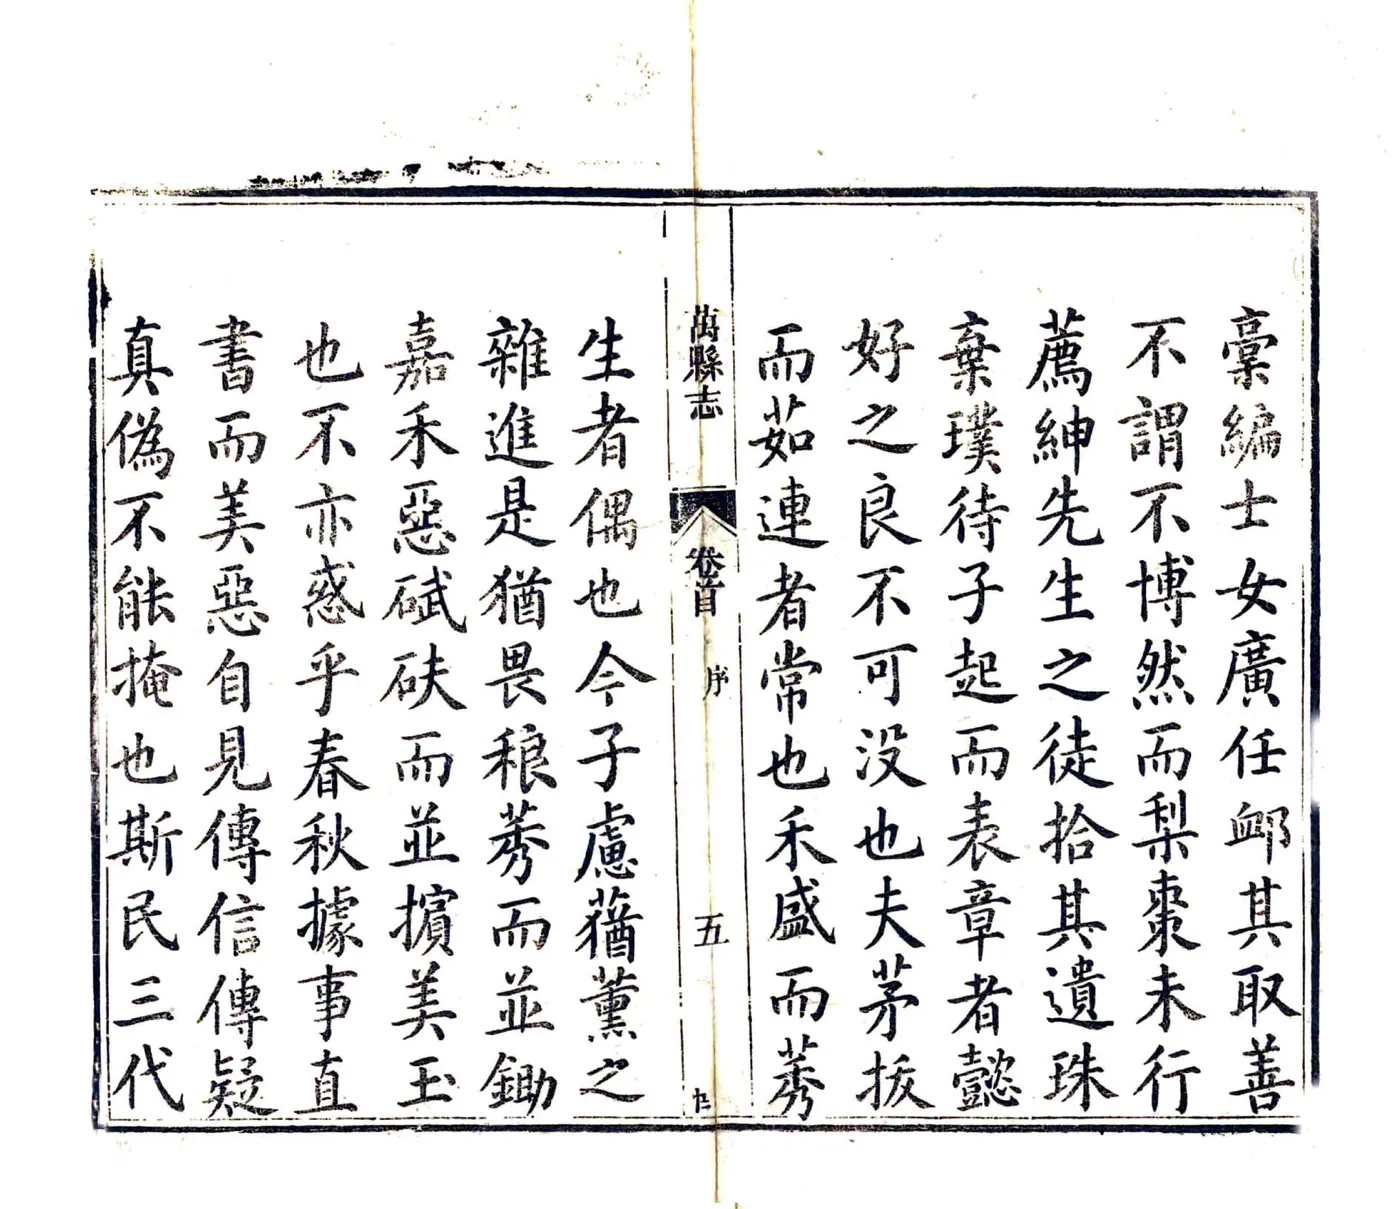 稾編士女廣任䘏其取善
不謂不博然而梨棗未行
薦紳先生之徒拾其遺珠
棄璞待子起而表章者懿
好之良不可没也夫茅拔
而茹連者常也禾盛而莠
萬縣志
卷首
序
五
生者偶也今子慮蕕薰之
雜進是猶畏稂莠而並鋤
嘉禾惡碔砆而並擯美玉
也不亦惑乎春秋據事直
書而美惡自見傳信傳疑
真偽不能掩也斯民三代